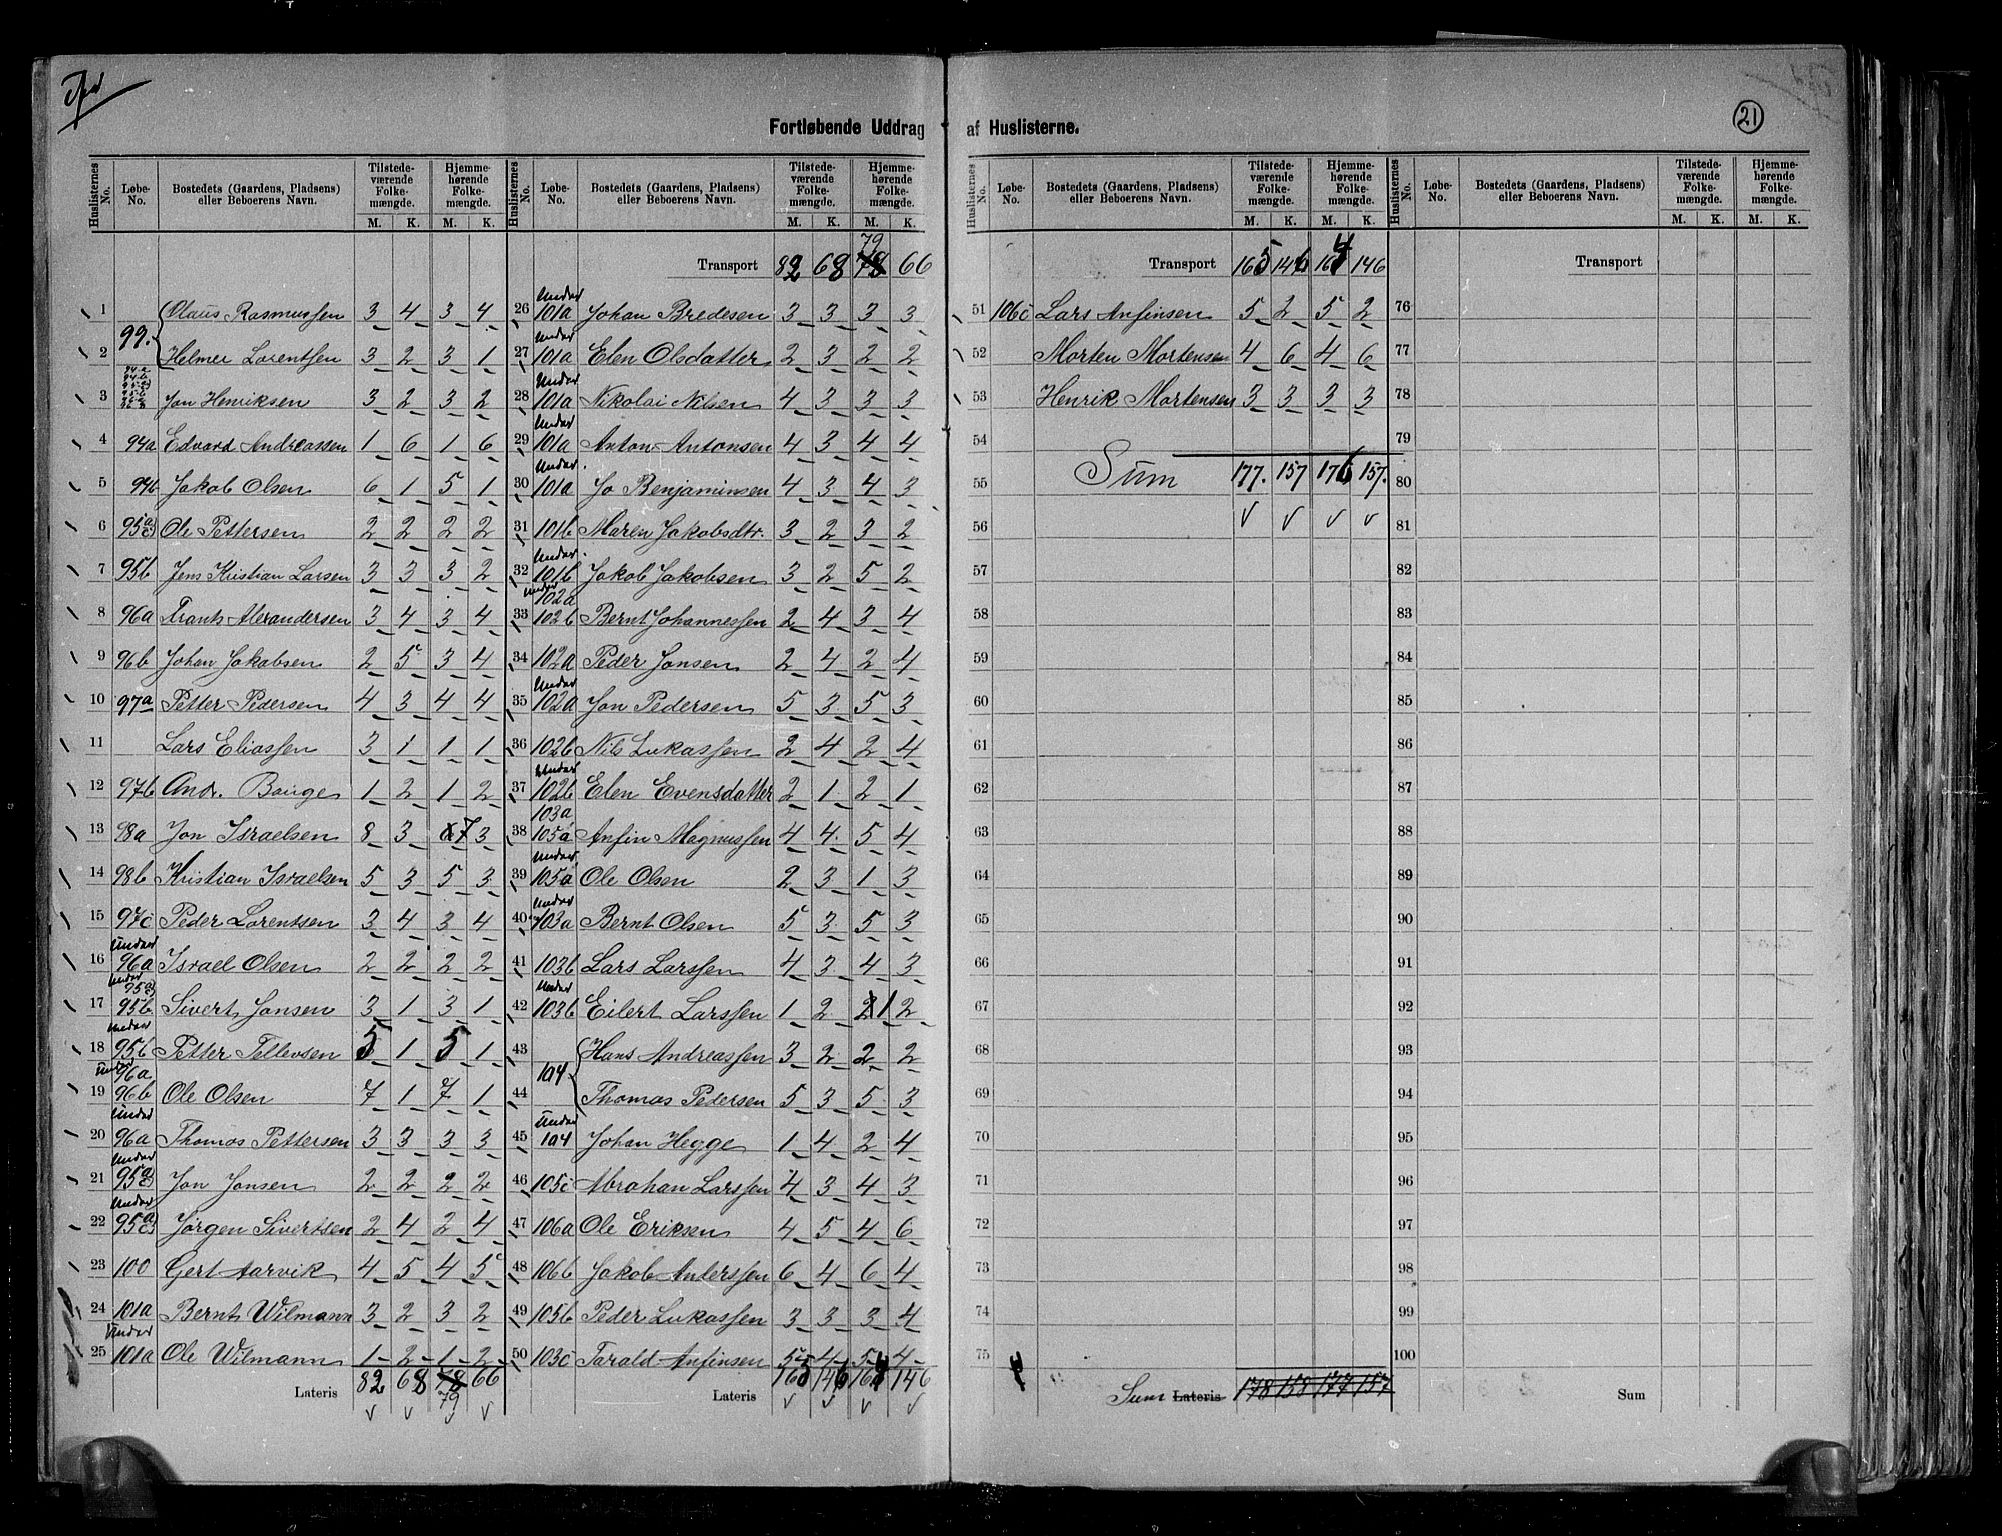 Fortløbende Uddrag af Huslisterne.
21
Huslisternes No. Løbe-No. Bostedets (Gaardens, Pladsens) eller Beboerens Navn. Tilstedeværende Folkemængde. M. K. Hjemmehørende Folkemængde. M. K.
1 99. Olaus Rasmussen 3 4 3 4
2 Helmer Lorentsen 3 2 3 1
3 Jon Henriksen 3 2 3 2
4 94a Edvard Andreassen 1 6 1 6
5 94b Jakob Olsen 6 1 5 1
6 95a Ole Pettersen 2 2 2 2
7 95b Jens Kristian Larsen 3 3 3 2
8 96a Frants Alexandersen 3 4 3 4
9 96b Johan Jakobsen 2 5 3 4
10 97a Petter Pedersen 4 3 4 4
11 Lars Eliassen 3 1 1 1
12 97b And. Bauge 1 2 1 2
13 98a Jon Israelsen 8 3 7 3
14 98b Kristian Israelsen 5 3 5 3
15 97c Peder Lorentsen 3 4 3 4
16 Under 96a Israel Olsen 2 2 2 2
17 Under 95b Sivert Jonsen 3 1 3 1
18 Under 95b Petter Tellevsen 5 1 5 1
19 Under 96a 96b Ole Olsen 7 1 7 1
20 Under 96a Thomas Pettersen 3 3 3 3
21 Under 95a Jon Jonsen 2 2 2 2
22 Under 95a Jørgen Sivertsen 2 4 2 4
23 100 Gert Aarvik 4 5 4 5
24 101a Bernt Wilmann 3 2 3 2
25 Under 101a Ole Wilmann 1 2 1 2
Lateris 82 68 78 66
79
Huslisternes No. Løbe-No. Bostedets (Gaardens, Pladsens) eller Beboerens Navn. Tilstedeværende Folkemængde. M. K. Hjemmehørende Folkemængde. M. K.
79
Transport 82 68 78 66
26 Under 101a Johan Bredesen 3 3 3 3
27 Under 101a Elen Olsdatter 2 3 2 2
28 Under 101a Nikolai Nilsen 4 3 3 3
29 Under 101a Anton Antonsen 4 3 4 4
30 Under 101a Jo Benjaminsen 4 3 4 3
31 101b Maren Jakobsdtr. 3 2 3 2
32 Under 101b Jakob Jakobsen 3 2 5 2
33 Under 102a 102b Bernt Johannessen 2 4 3 4
34 102a Peder Jonsen 2 4 2 4
35 Under 102a Jon Pedersen 5 3 5 3
36 102b Nils Lukassen 2 4 2 4
37 Under 102b Elen Evensdatter 2 1 2 1
38 103a 105a Anfin Magnussen 4 4 5 4
39 Under 105a Ole Olsen 2 3 1 3
40 Under 103a Bernt Olsen 5 3 5 3
41 103b Lars Larssen 4 3 4 3
42 Under 103b Eilert Larssen 1 2 1 2
43 104 Hans Andreassen 3 2 2 2
44 Thomas Pedersen 5 3 5 3
45 Under 104 Johan Hegge 1 4 2 4
46 105c Abrahan Larssen 4 3 4 3
47 106a Ole Eriksen 4 5 4 6
48 106b Jakob Anterssen 6 4 6 4
49 105b Peder Lukassen 3 3 3 4
50 103c Tarald Anfinsen 5 4 5 4
Lateris 165 146 164 146
Huslisternes No. Løbe-No. Bostedets (Gaardens, Pladsens) eller Beboerens Navn. Tilstedeværende Folkemængde. M. K. Hjemmehørende Folkemængde. M. K.
Transport 165 146 164 146
51 106c Lars Anfinsen 5 2 5 2
52 Morten Mortensen 4 6 4 6
53 Henrik Mortensen 3 3 3 3
54
55 Sum 177. 157 176 157.
56
57
58
59
60
61
62
63
64
65
66
67
68
69
70
71
72
73
74
75
Sum Lateris 178 158 177 157
Huslisternes No. Løbe-No. Bostedets (Gaardens, Pladsens) eller Beboerens Navn. Tilstedeværende Folkemængde. M. K. Hjemmehørende Folkemængde. M. K.
Transport
76
77
78
79
80
81
82
83
84
85
86
87
88
89
90
91
92
93
94
95
96
97
98
99
100
Sum